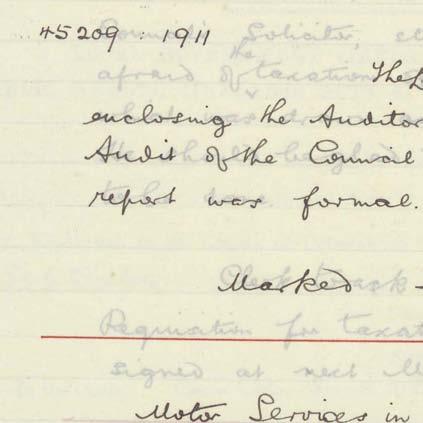 45209 : 1911
The
enclosing the Auditor
Audit of the Council
report was formal.
Marked -
Motor Services in